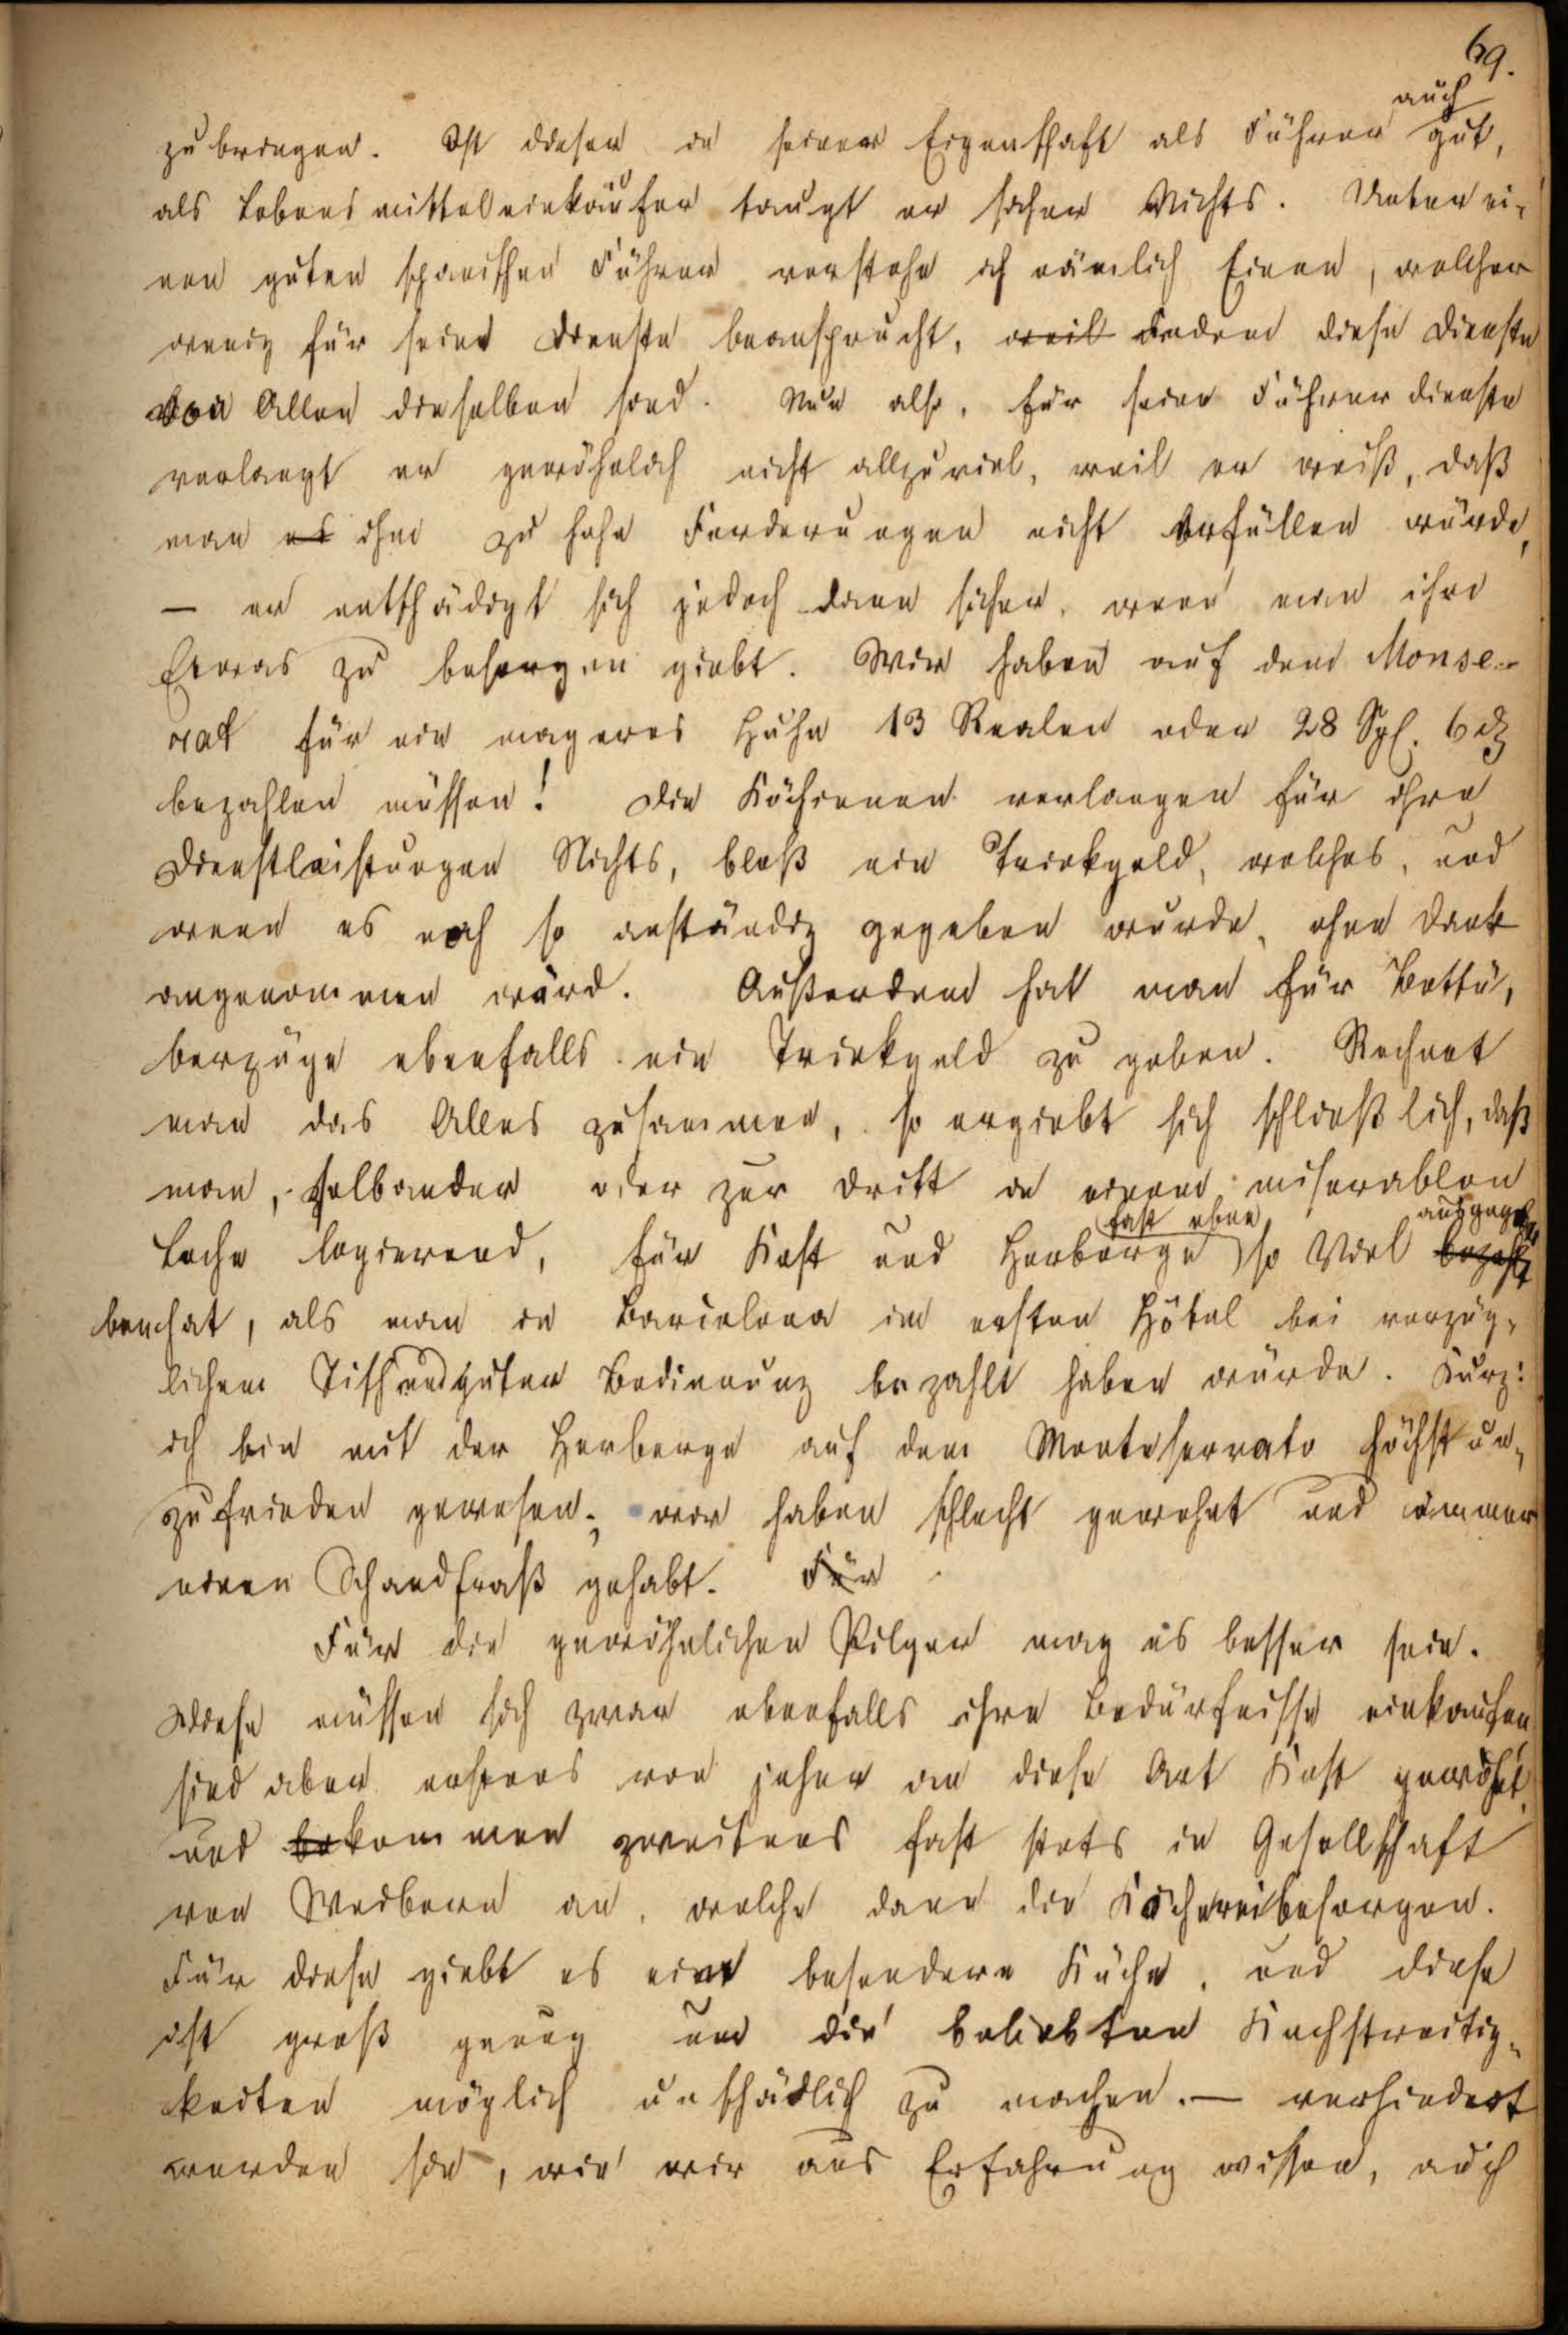 69.
auch
zu bringen. Ist dieser in seiner Eigenschaft als Führer gut,
als Lebensmitteleinkäufer taugt er sicher Nichts. Unter ei-
nen guten spanischen Führer verstehe ich nämlich Einen, welcher
wenig für seine Dienste beansprucht, weil indem diese Dienste
von Allen dieselben sind. Nun also, für seine Führerdienste
verlangt er gewöhnlich nicht allzuviel, weil er weiß, daß
man es ihm zu hohe Forderungen nicht erfüllen würde,
– er entschädigt sich jedoch dann sicher, wenn man ihm
Etwas zu besorgen giebt. Wir haben auf dem Monse-
rat für ein mageres Huhn 13 Realen oder 28 Sgl. 6 ₰
bezahlen müssen! Die Köchinnen verlangen für ihre
Dienstleistungen Nichts, bloß ein Trinkgeld, welches, und
wenn es noch so anständig gegeben wurde, ohne Dank
angenommen wird. Außerdem hat man für Bettü-
berzüge ebenfalls ein Trinkgeld zu geben. Rechnet
man das Alles zusammen, so ergiebt sich schließlich, daß
man, selbander oder zur Dritt in einem miserablen
fast eben ausgege-
Loche logierend, für Kost und Herberge so Viel bezahlt
ben hat, als man in Barcelona im ersten Hôtel bei vorzüg-
lichem Tisch und guter Bedienung bezahlt haben würde. Kurz:
ich bin mit der Herberge auf dem Monteserrato höchst un-
zufrieden gewesen; wir haben schlecht gewohnt und immer
einen Schandfraß gehabt. Für
Für die gewöhnlichen Pilger mag es besser sein.
Diese müssen sich zwar ebenfalls ihre Bedürfnisse einkaufen
sind aber erstens von jeher an diese Art Kost gewöhnt,
und bekommen zweitens fast stets in Gesellschaft
von Weibern an, welche dann die Kocherei besorgen.
Für diese giebt es eine besondere Küche, und diese
ist groß genug um die beliebten Kochstreitig-
keiten möglich unschädlich zu machen. – verhindert
werden sie, wie wir aus Erfahrung wissen, auch